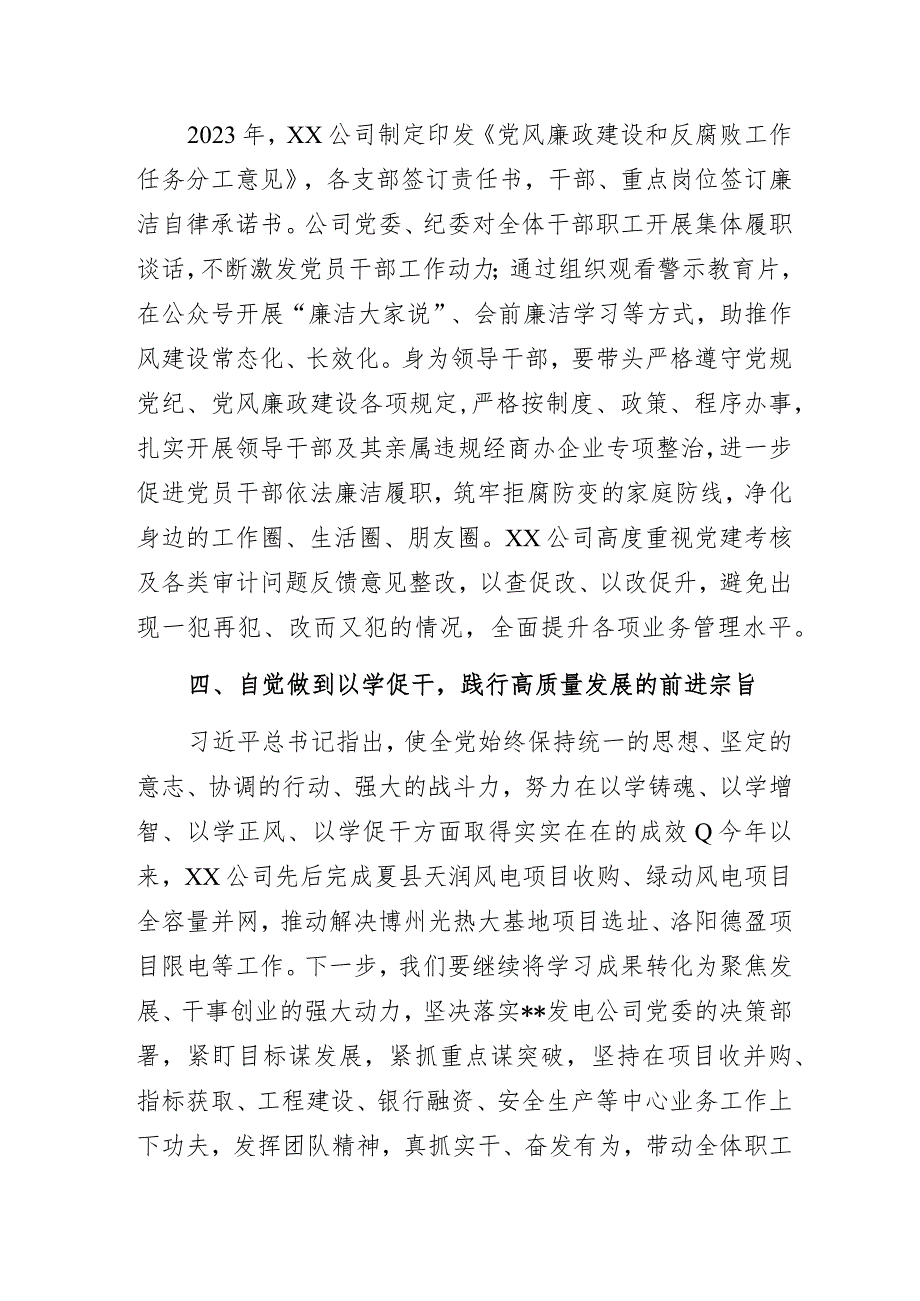 2023 年，XX 公司制定印发《党风廉政建设和反腐败工作
任务分工意见》，各支部签订责任书，干部、重点岗位签订廉
洁自律承诺书。公司党委、纪委对全体干部职工开展集体履职
谈话，不断激发党员干部工作动力；通过组织观看警示教育片，
在公众号开展“廉洁大家说”、会前廉洁学习等方式，助推作
风建设常态化、长效化。身为领导干部，要带头严格遵守党规
党纪、党风廉政建设各项规定,严格按制度、政策、程序办事，
扎实开展领导干部及其亲属违规经商办企业专项整治，进一步
促进党员干部依法廉洁履职，筑牢拒腐防变的家庭防线，净化
身边的工作圈、生活圈、朋友圈。XX 公司高度重视党建考核
及各类审计问题反馈意见整改，以查促改、以改促升，避免出
现一犯再犯、改而又犯的情况，全面提升各项业务管理水平。
四、自觉做到以学促干，践行高质量发展的前进宗旨
习近平总书记指出，使全党始终保持统一的思想、坚定的
意志、协调的行动、强大的战斗力，努力在以学铸魂、以学增
智、以学正风、以学促干方面取得实实在在的成效 Q 今年以
来，XX 公司先后完成夏县天润风电项目收购、绿动风电项目
全容量并网，推动解决博州光热大基地项目选址、洛阳德盈项
目限电等工作。下一步，我们要继续将学习成果转化为聚焦发
展、干事创业的强大动力，坚决落实**发电公司党委的决策部
署，紧盯目标谋发展，紧抓重点谋突破，坚持在项目收并购、
指标获取、工程建设、银行融资、安全生产等中心业务工作上
下功夫，发挥团队精神，真抓实干、奋发有为，带动全体职工